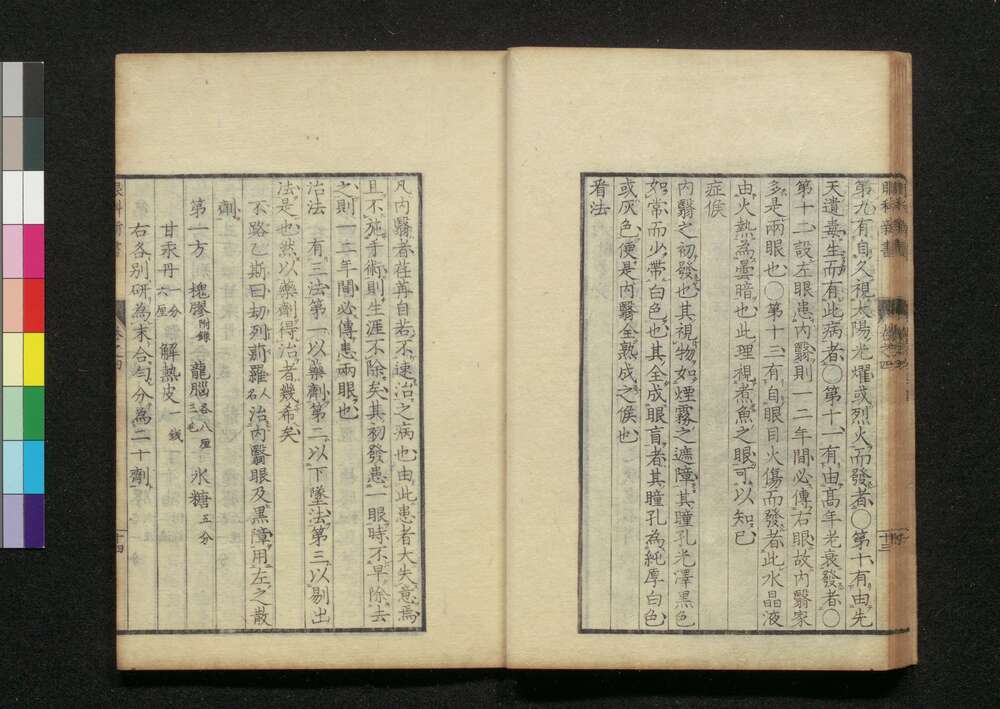 第九有自久視太陽光燿或烈火而發者〇第十有由先
天遺毒生而有此病者〇第十一有由髙年光衰發者〇
第十二設左眼患内翳則一二年間必傳右眼故内翳家
多是兩眼也〇第十三有自眼目火傷而發者此水晶液
由火熱為曇暗也此理視煮魚之眼可以知已
症候
内翳之初發也其視物如煙霧之遮障其瞳孔光澤黒色
如常而少帶白色也其全成眼盲者其瞳孔為純厚白色
或灰色便是内翳全熟成之候也
看法
凡内翳者往苒自若不速治之病也由此患者大失意焉
且不施手術則生涯不除矣其初發患一眼時不早除去
之則一二年間必傳患兩眼也
治法 有三法第一以藥劑第二以下墜法第三以剔出
法是也然以藥劑得治者幾希矣
不路乙斯曰劫列莉羅人名治内翳眼及黒障用左之散
劑
第一方 槐膠附錄 龍腦各八厘三毛 氷糖五分
甘汞丹一分六厘 解熱皮一錢
右各別研為末合匀分為二十劑
眼科新書
十四
十三